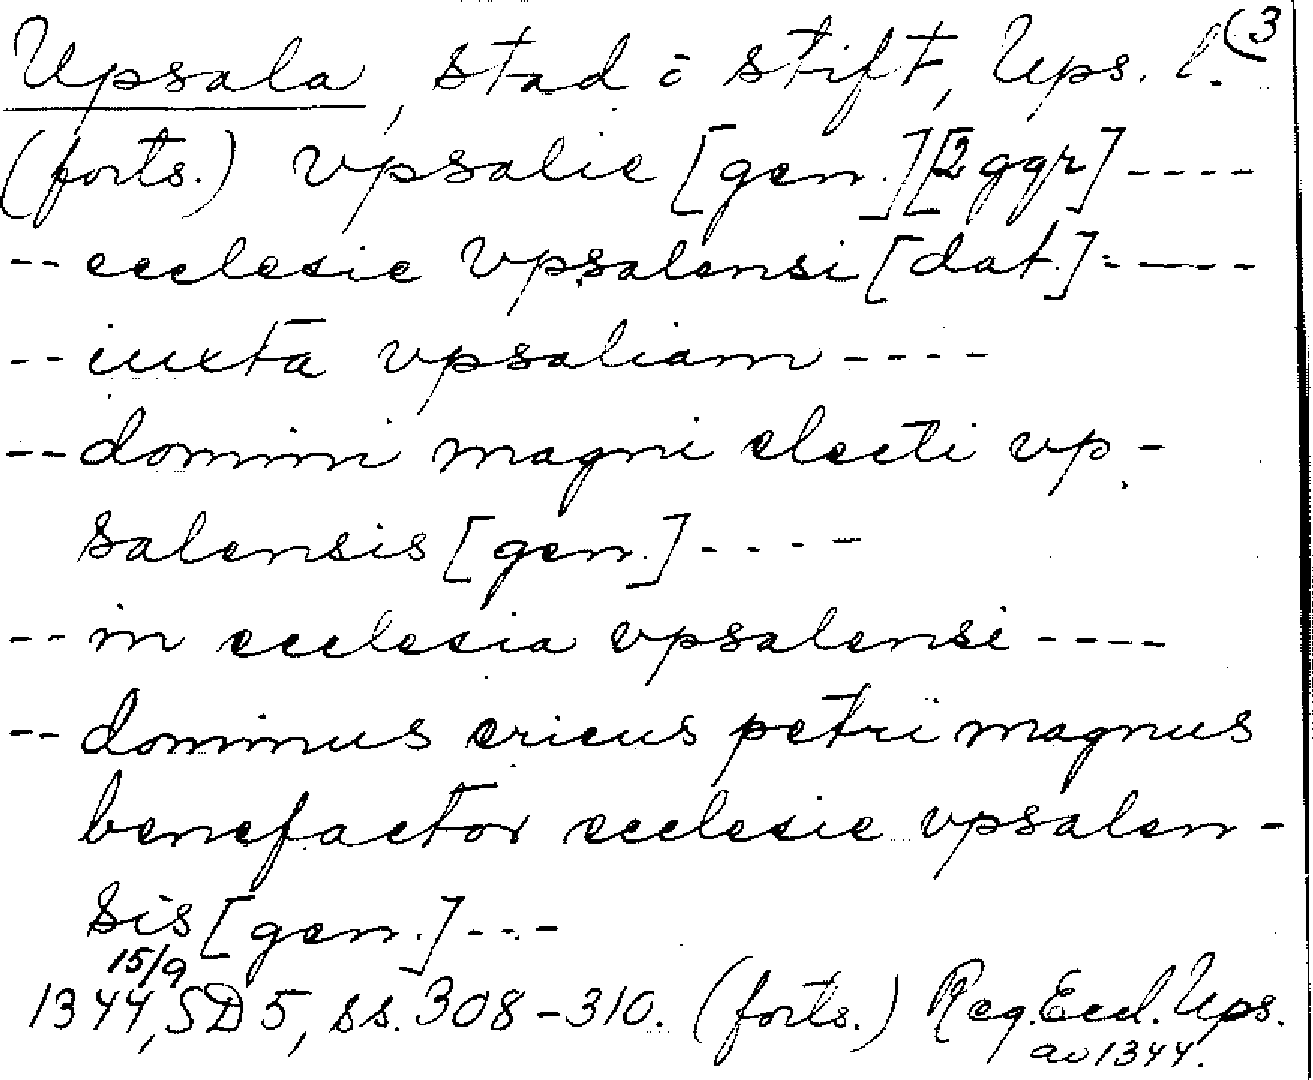 Upsala, stad o stift, Ups. l. (3
(forts.) vpsalie [gen.][2 ggr] ----
-- ecclesie Vpsalensi [dat.]: ----
-- iuxta vpsaliam ----
-- domini magni electi vp-
salensis [gen.] ----
-- in ecclesia vpsalensi ----
-- dominus ericus petri magnus
benefactor ecclesie vpsalen-
sis [gen.] ---
15/9
1344, SD 5, ss. 308-310. (forts.) Reg. Eccl. Ups.
av 1344.